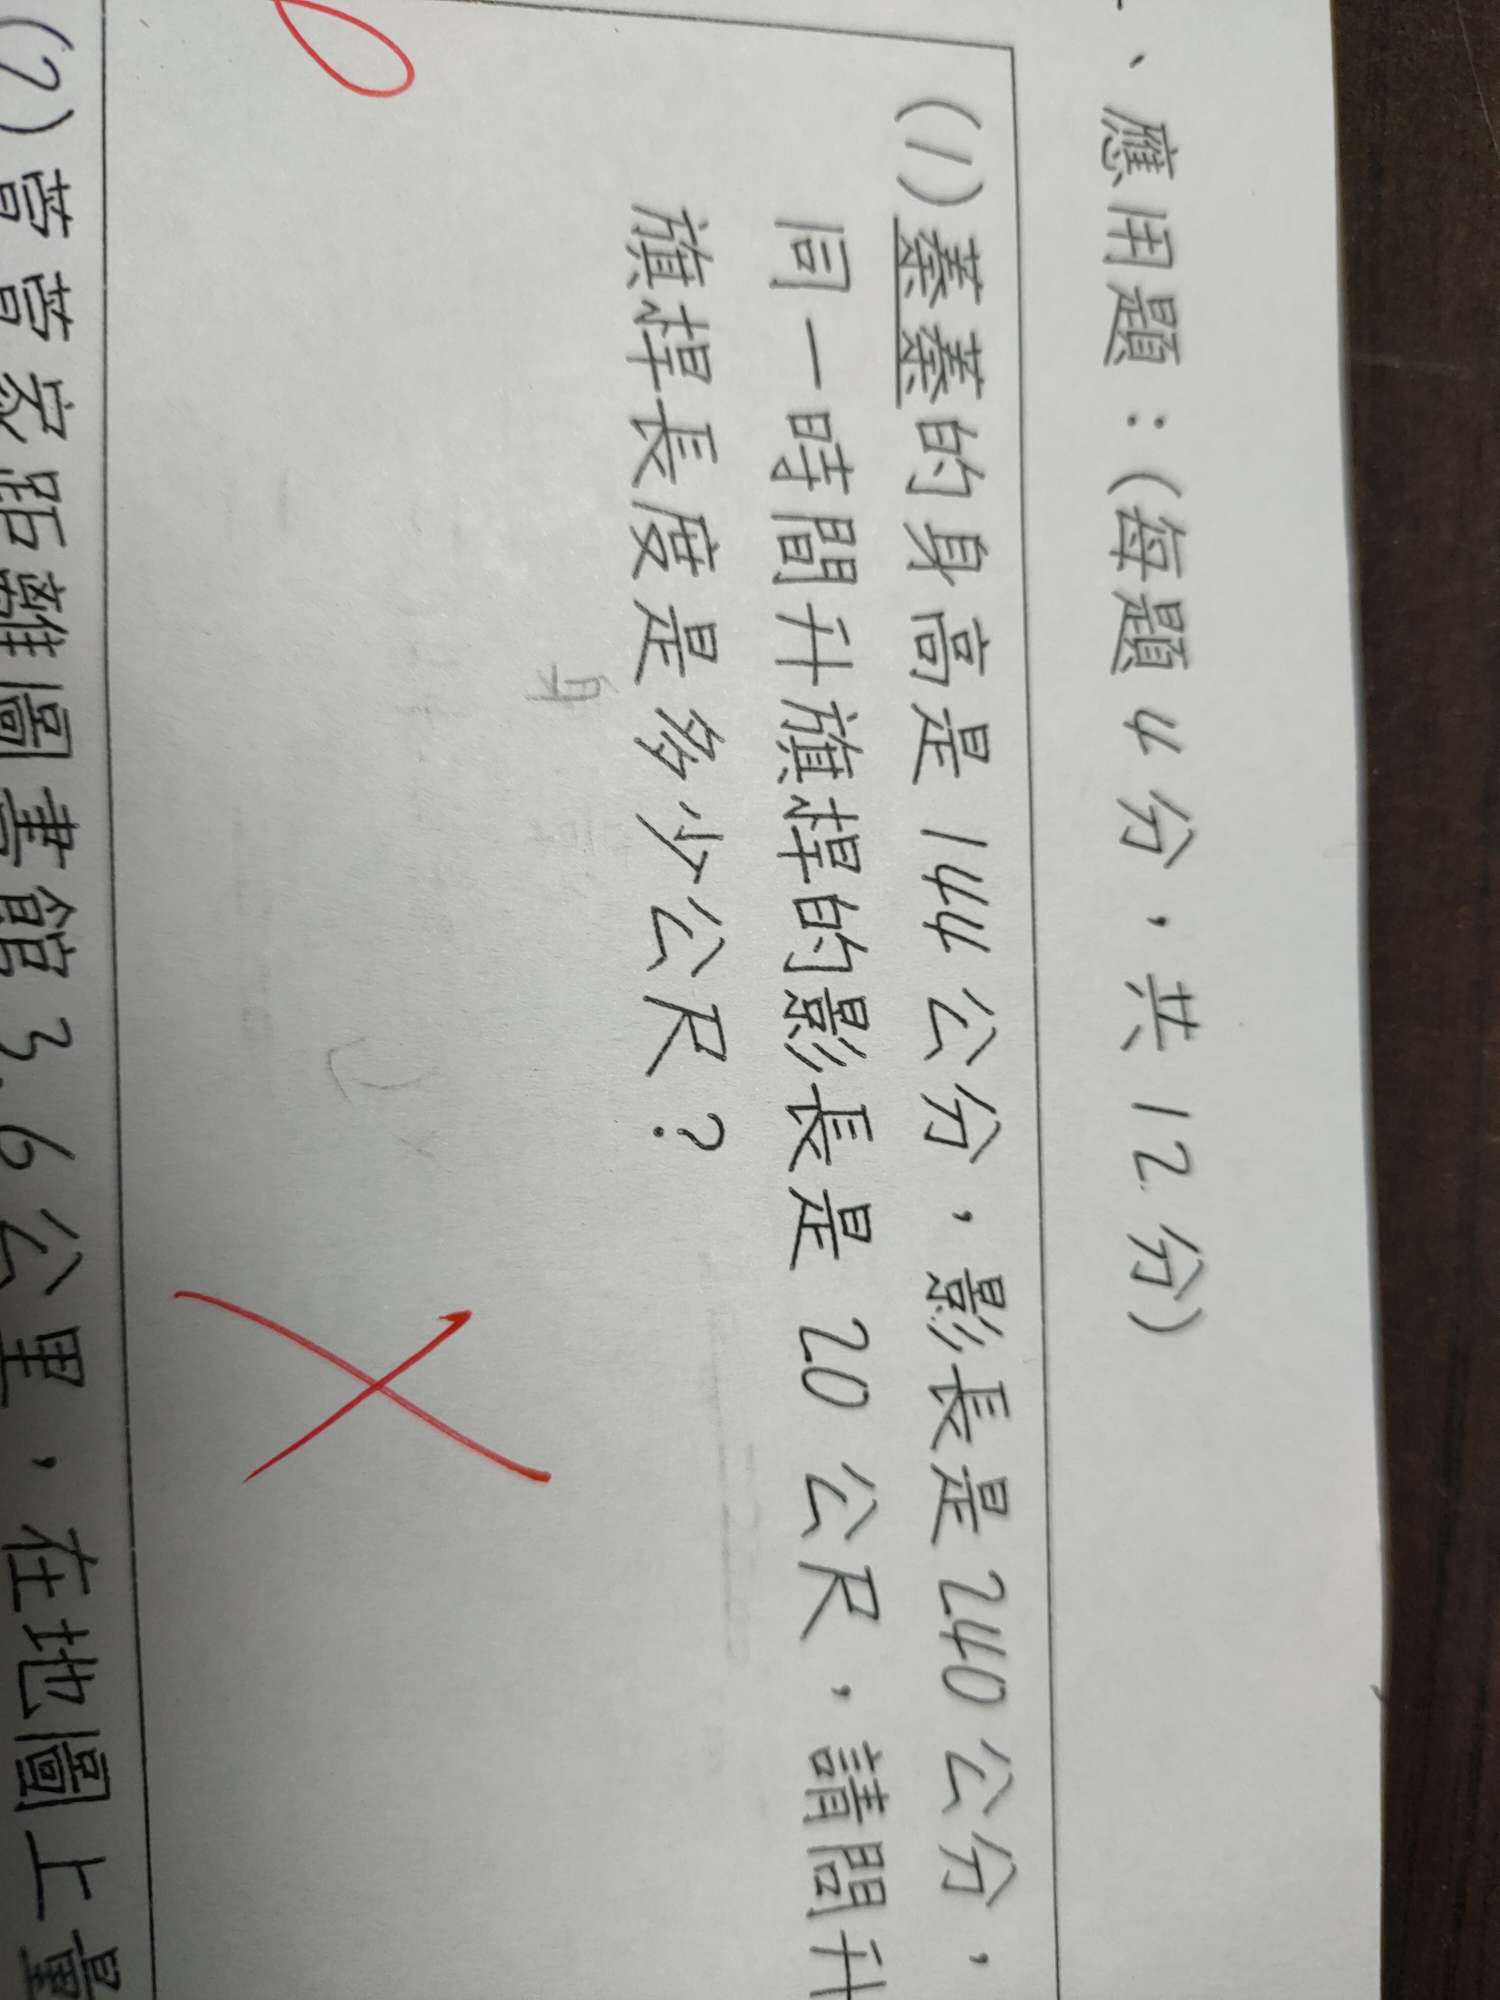 、應用題：(每題4分，共12分)
(1)蓁蓁的身高是144公分，影長是240公分，
同一時間升旗桿的影長是20公尺，請問升
旗桿長度是多少公尺？
身
(2)菅菅家距離圖書館3.6公里，在地圖上量